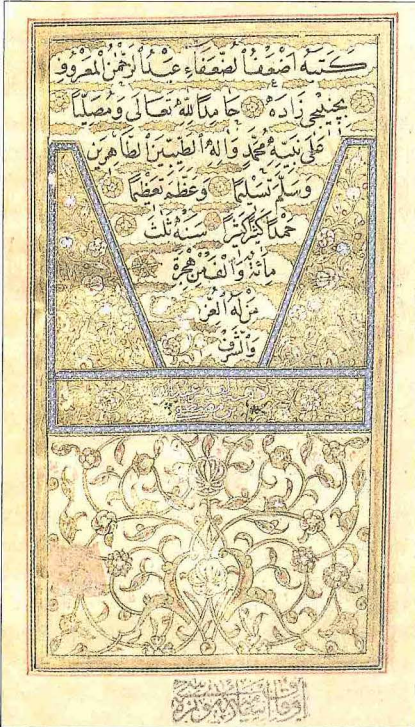 كتبه اضعف الضعفاء عبد الرحمن المعروف
زاده حامدا لله تعالى ومصليا
على نبيه محمد واله الطيبين الطاهرين
وسلم تسليما وعظم تعظيما
حمدا كثيرا كثيرا سنة ثلث
مائة والف من هجرة
من له العز
والشرف